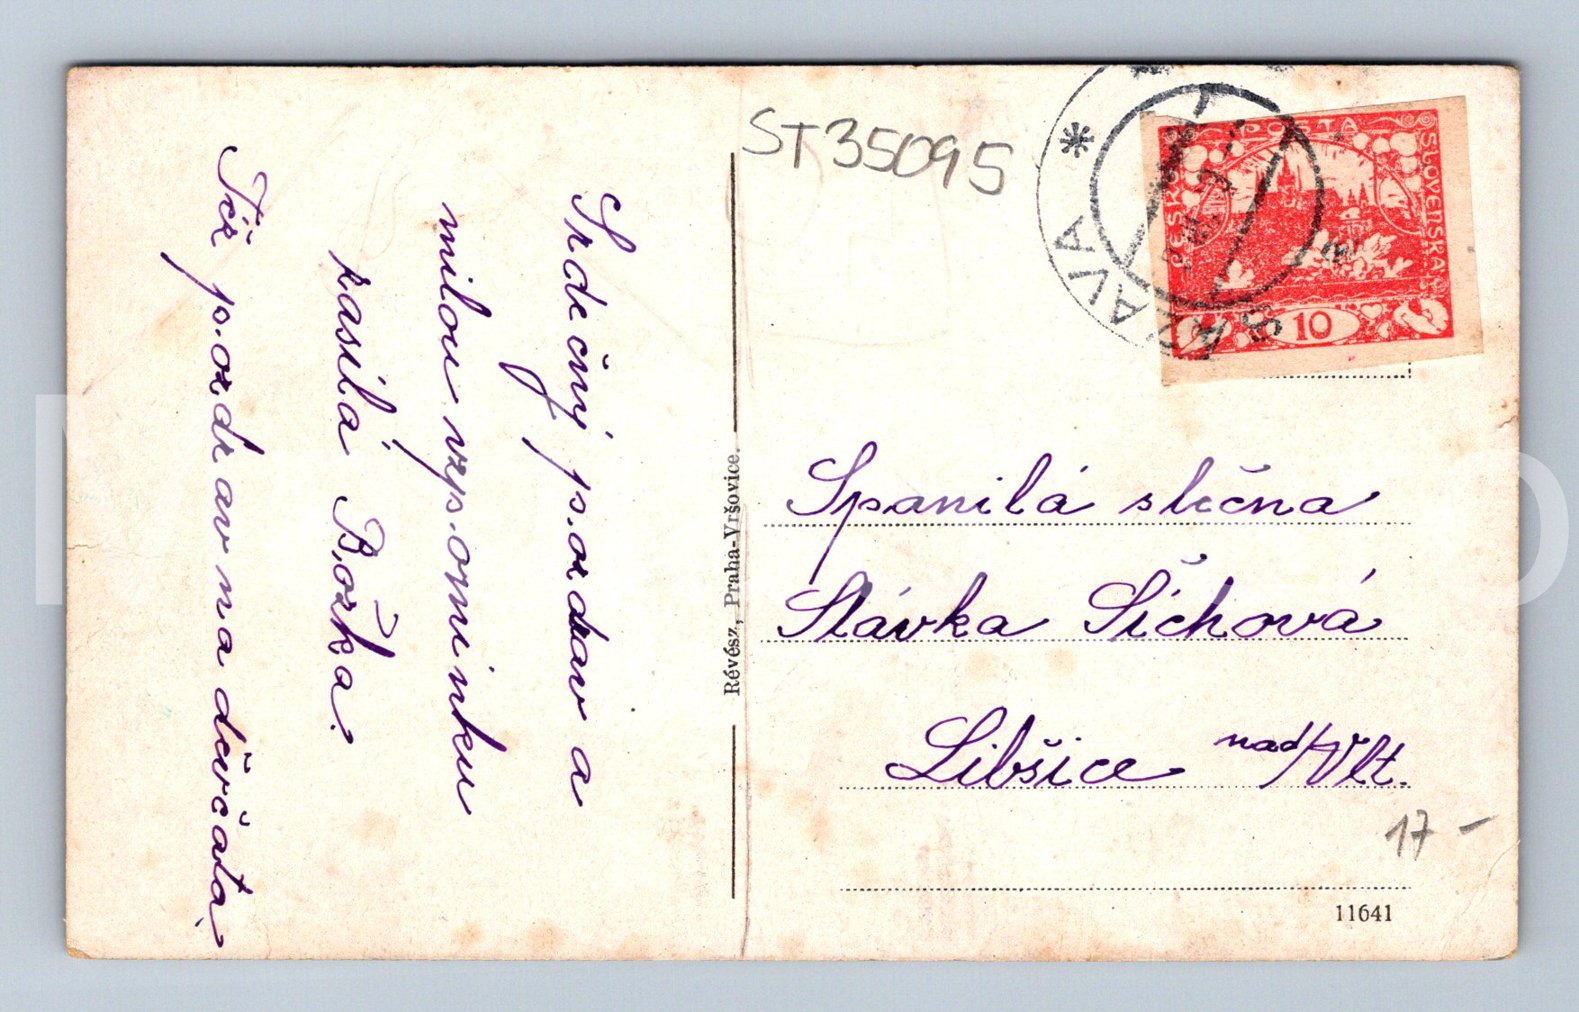 Srdečný pozdrav a
milou vzpomínku
zasílá Božka.
Též pozdrav na děvčata.
Révész, Praha-Vršovice.
ST35095
SÁZAVA
POŠTA
ČESKO
SLOVENSKÁ
10
Spanilá slečna
Slávka Síchová
Libšice nad/Vlt.
17 -
11641